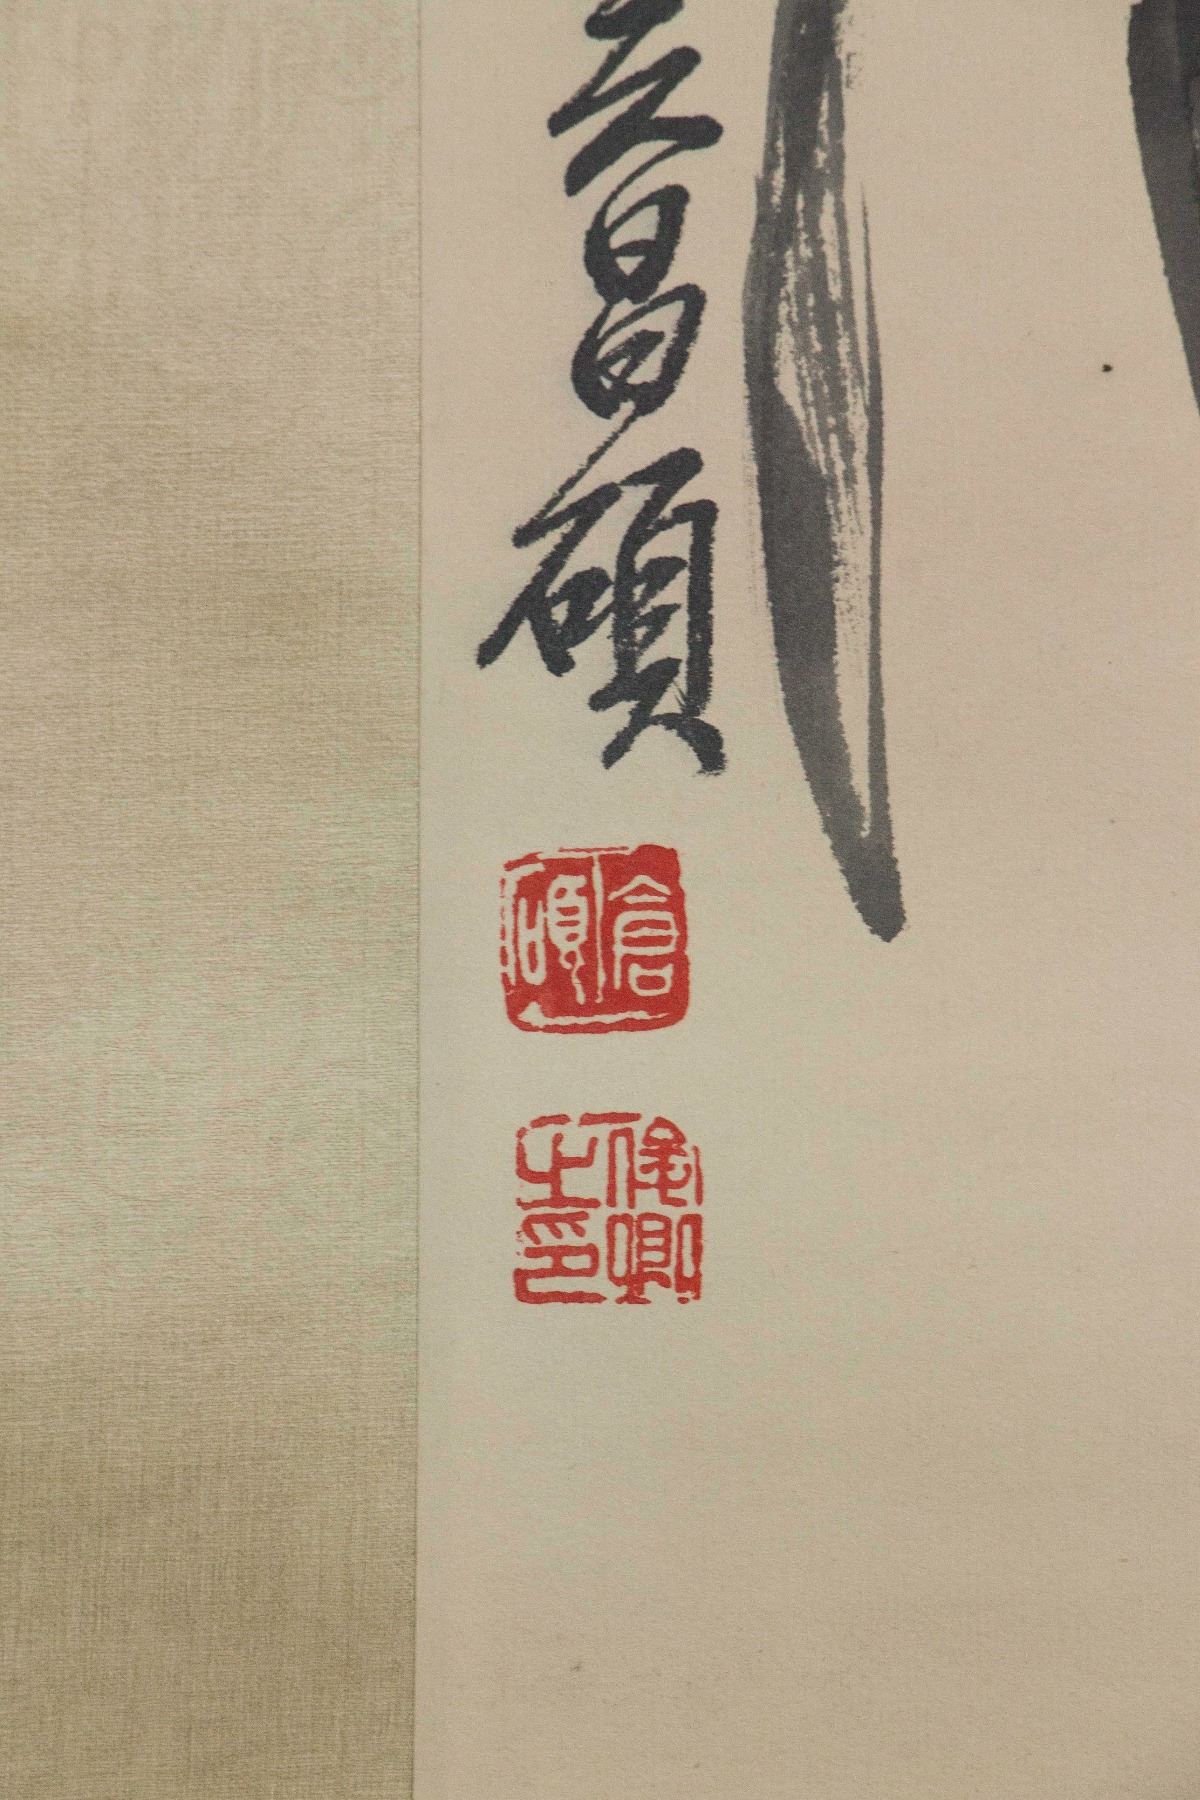 昌碩
倉碩
俊卿之印